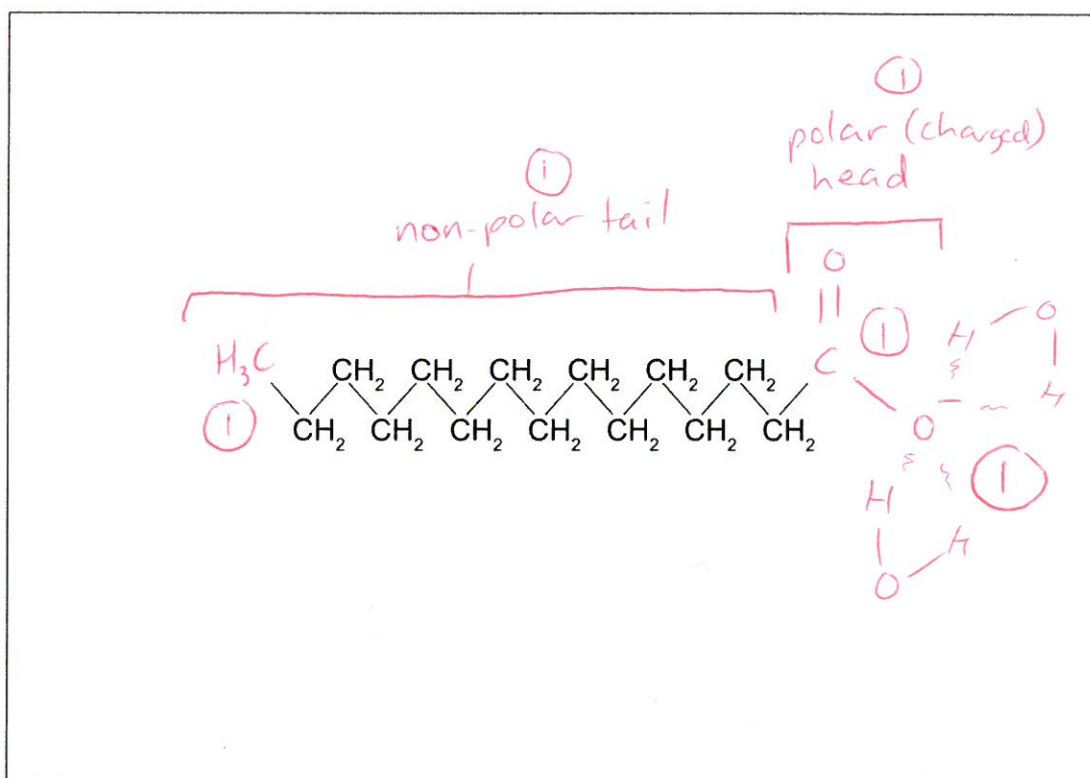 ①
polar (charged)
head
①
non-polar tail
O
H₃C
CH₂ CH₂ CH₂ CH₂ CH₂ CH₂
C
①
H
O
H
①
CH₂ CH₂ CH₂ CH₂ CH₂ CH₂ CH₂
O
-
①
H
H
O